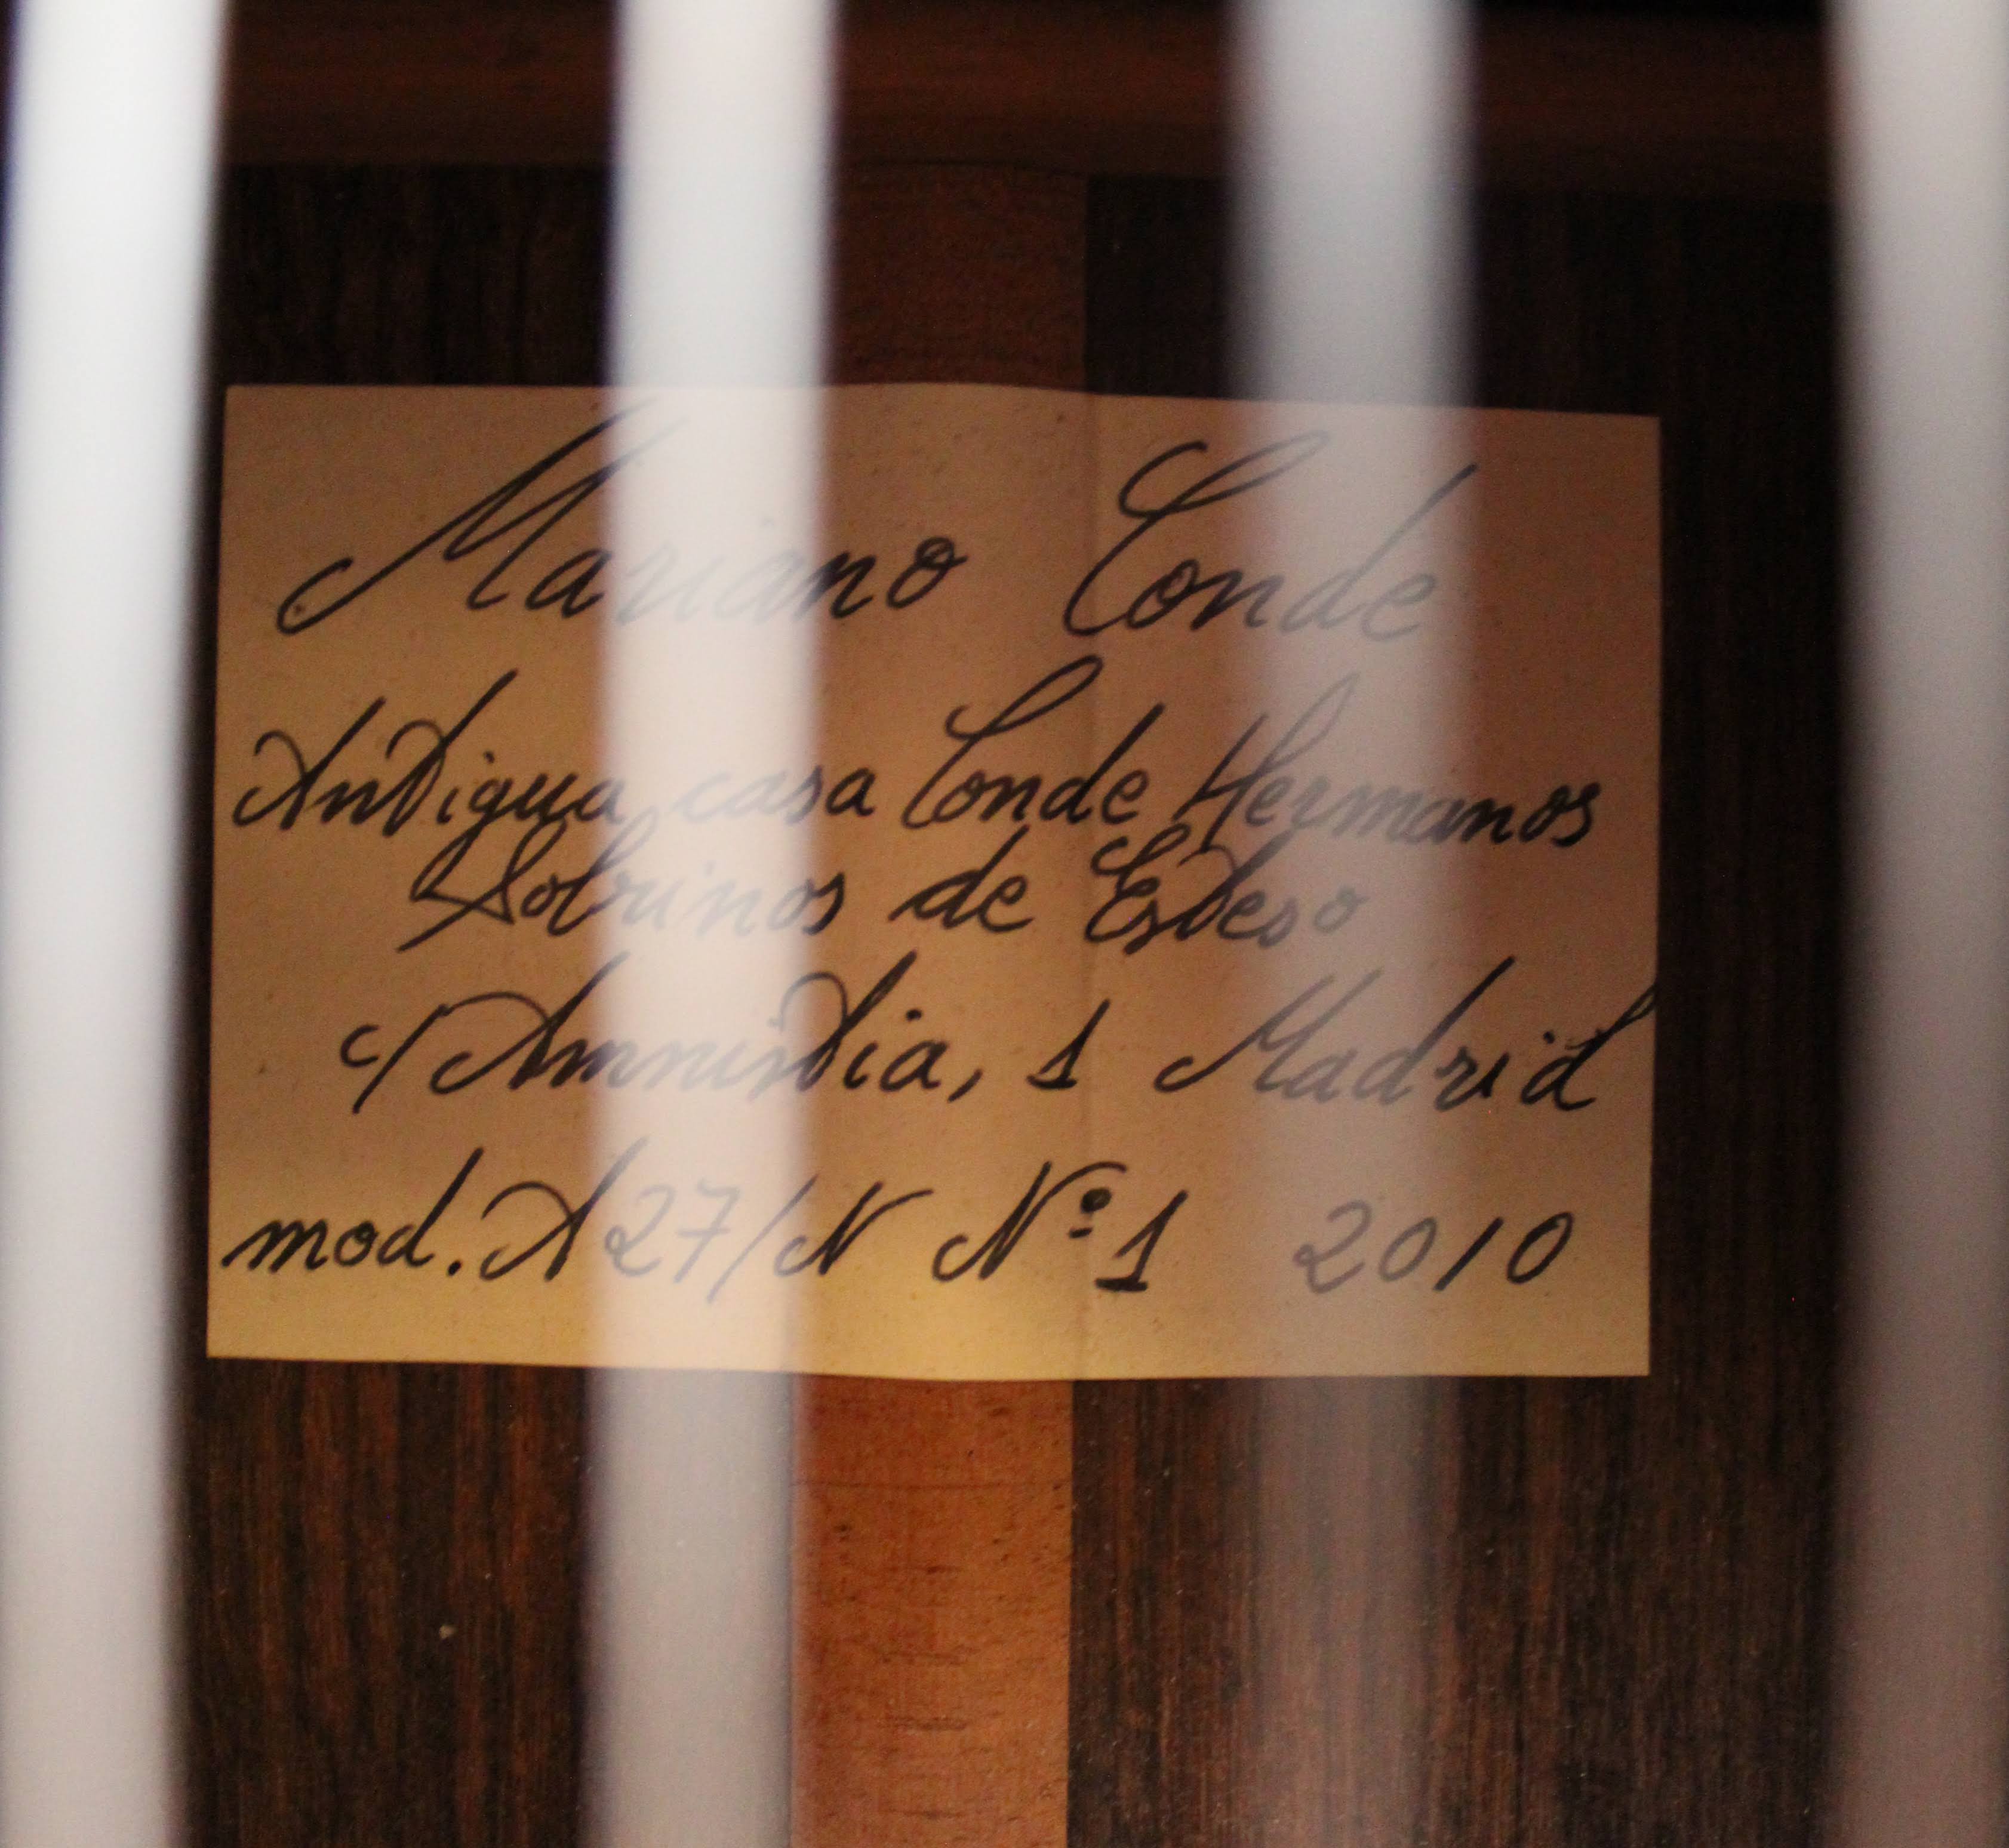 Mariano Conde
Antigua casa Conde Hermanos
Sobrinos de Esteso
c/Amnistia, 1 Madrid
mod. A27/N Nº1 2010